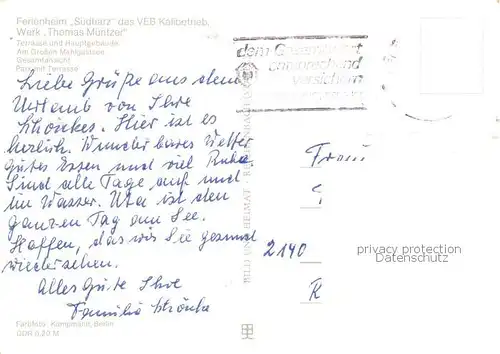 Ferienheim „Südharz" des VEB Kalibetrieb,
Werk „Thomas Müntzer"
Terrasse und Hauptgebäude
Am Großen Mehlgstsee
Gesamtansicht
Park mit Terrasse
dem Gesamtwert
entsprechend
versichern
Liebe Grüße aus dem
Urlaub von Ihre
Schönkes. Hier ist es
herlich. Wunderbares Wetter
gutes Essen und viel Ruhe.
Sind alle Tage auf und
im Wasser. Uta ist den
ganzen Tag am See.
Hoffen, das wir Sie gesund
wiedersehen.
Alles Gute Ihre
Familie Schönke
Frau
2140
privacy protection
Datenschutz
BILD UND HEIMAT · REICHENBACH
Farbfoto: Kampmann, Berlin
DDR 0,20 M